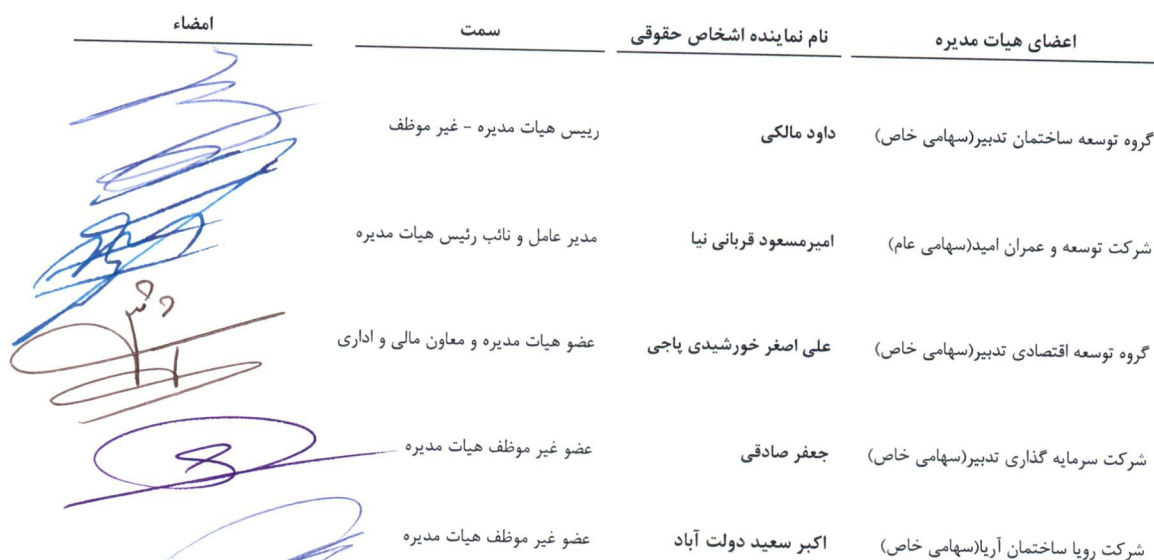 اعضای هیات مدیره نام نماینده اشخاص حقوقی سمت امضاء
گروه توسعه ساختمان تدبیر(سهامی خاص) داود مالکی رییس هیات مدیره - غیر موظف
شرکت توسعه و عمران امید(سهامی عام) امیرمسعود قربانی نیا مدیر عامل و نائب رئیس هیات مدیره
گروه توسعه اقتصادی تدبیر(سهامی خاص) علی اصغر خورشیدی پاجی عضو هیات مدیره و معاون مالی و اداری
شرکت سرمایه گذاری تدبیر(سهامی خاص) جعفر صادقی عضو غیر موظف هیات مدیره
شرکت رویا ساختمان آریا(سهامی خاص) اکبر سعید دولت آباد عضو غیر موظف هیات مدیره